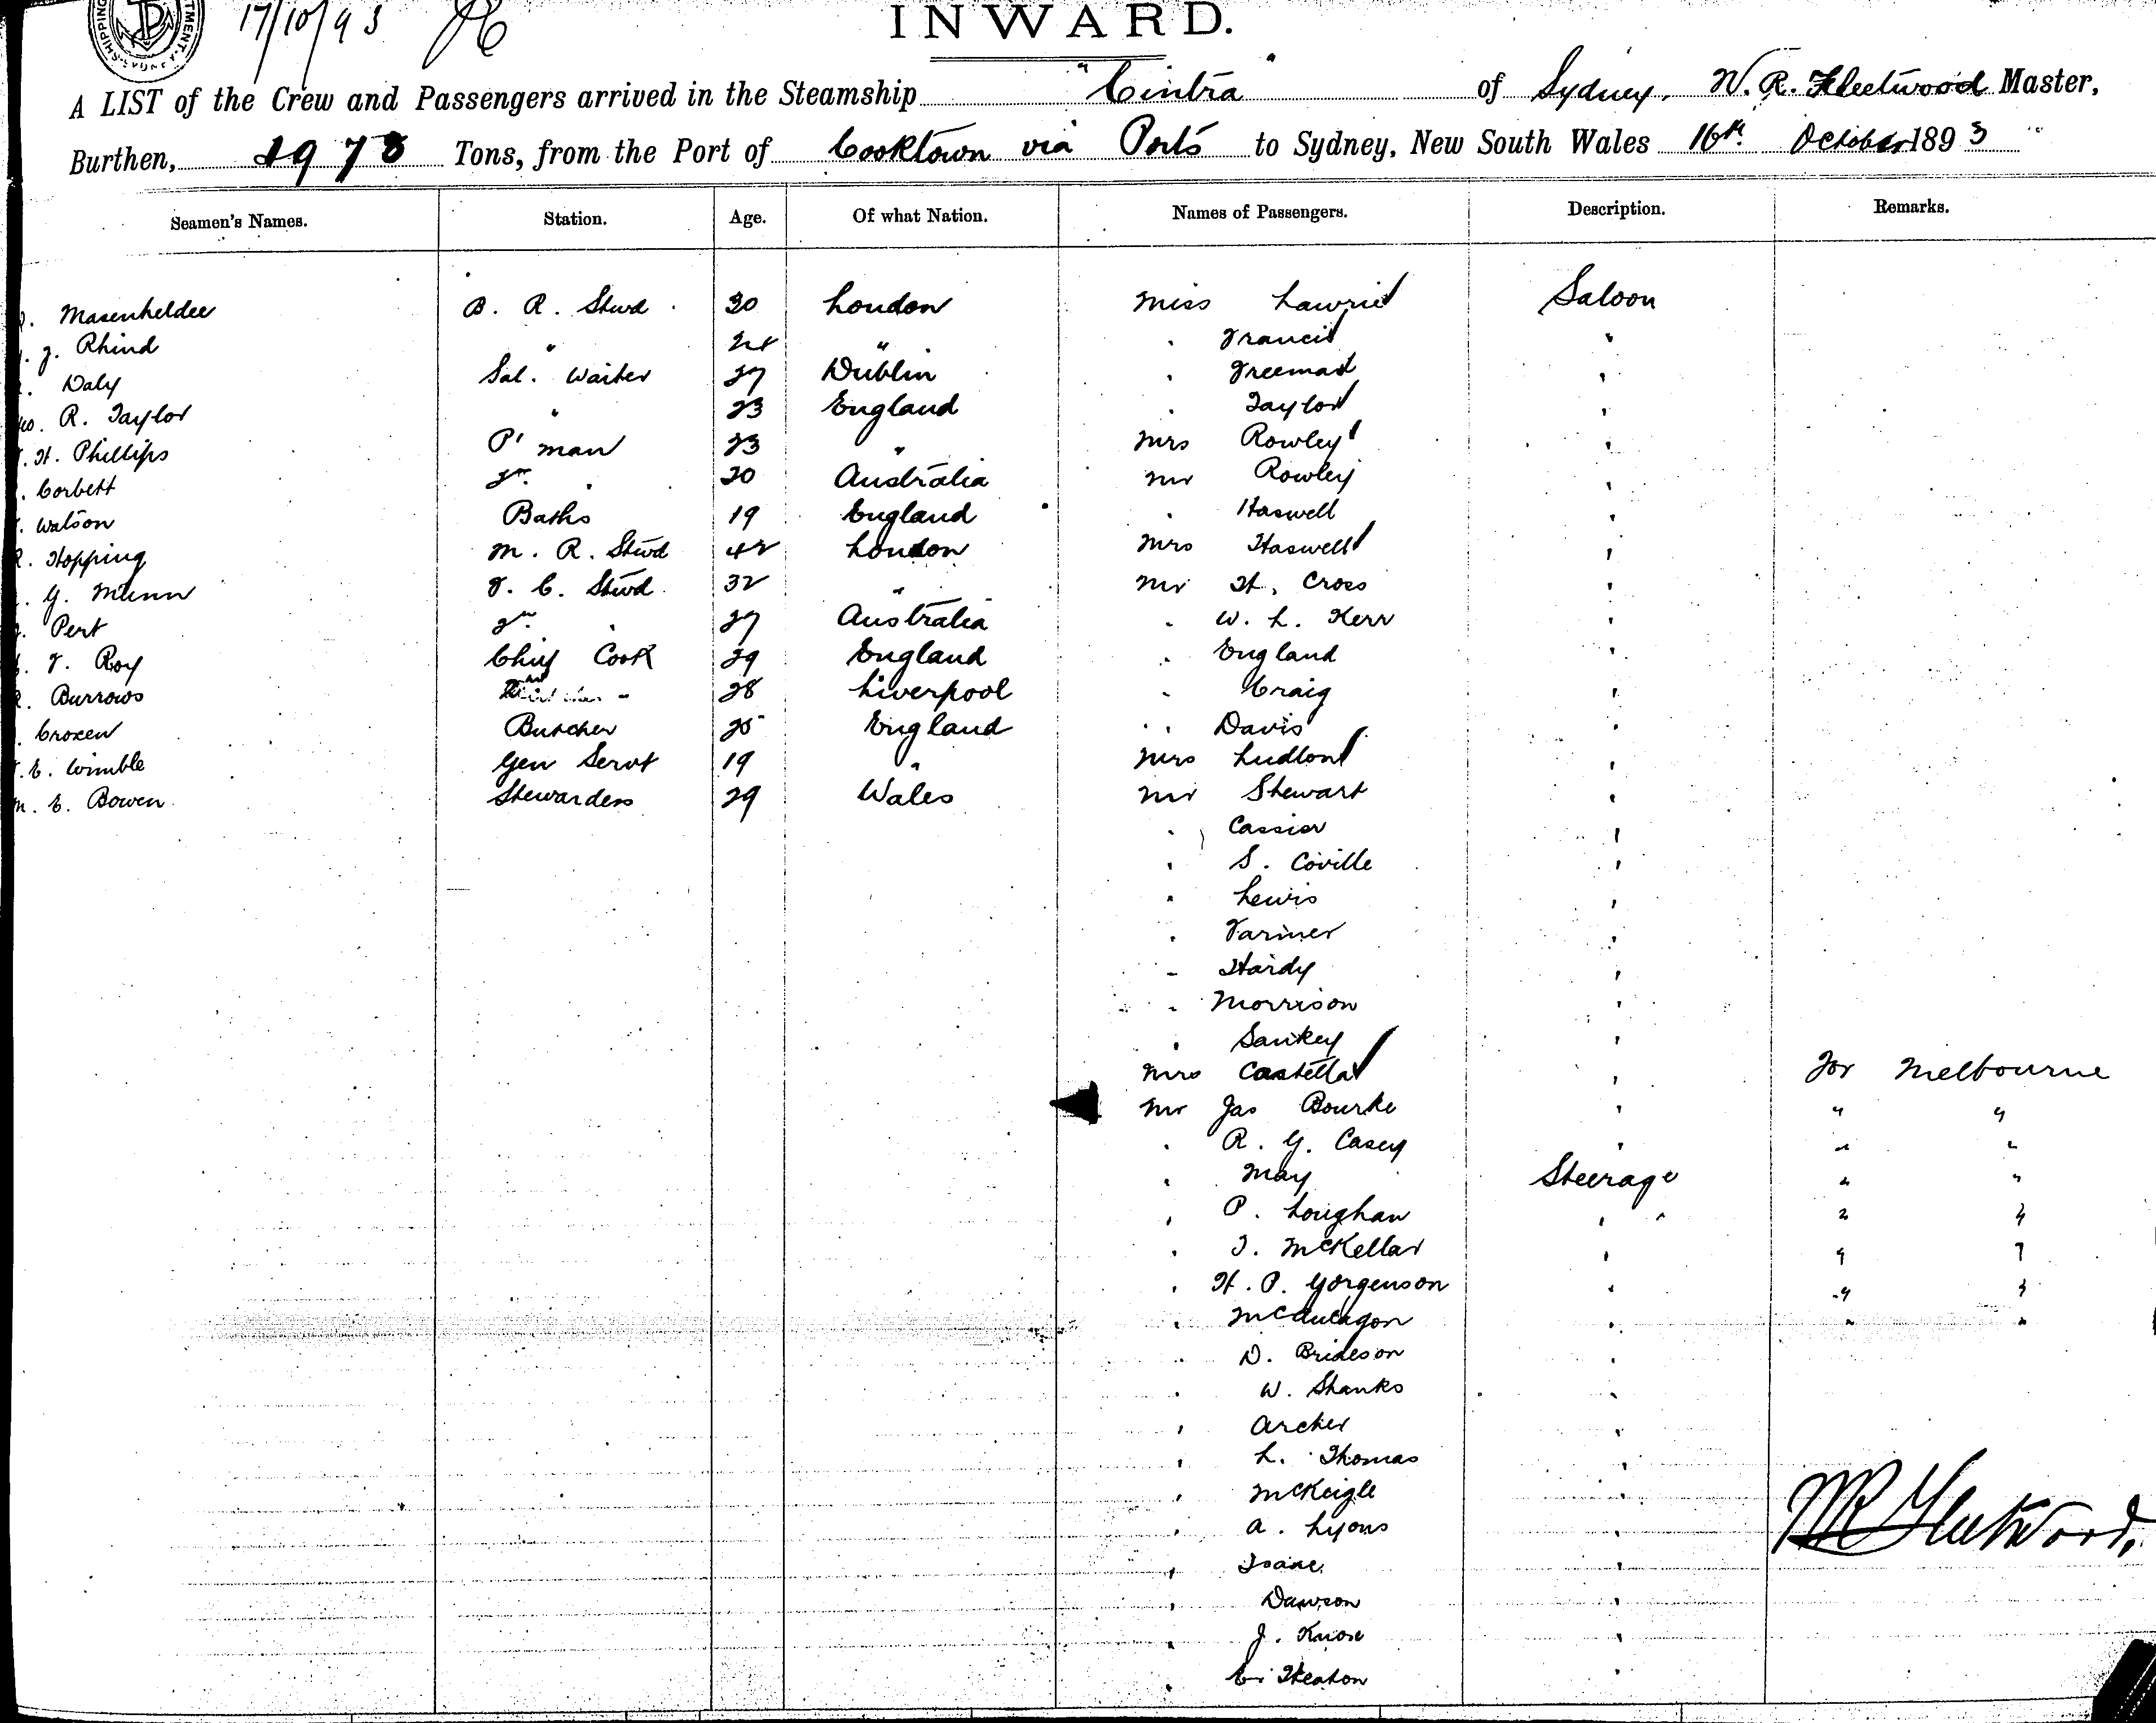 SHIPPING
TMENT.
SYDNEY
17/10/93
INWARD.
A LIST of the Crew and Passengers arrived in the Steamship "Cintra" of Sydney, W. R. Fleetwood Master,
Burthen, 1978 Tons, from the Port of Cooktown via Ports to Sydney, New South Wales 16th October 1893
Seamen's Names. Station. Age. Of what Nation. Names of Passengers. Description. Remarks.
Masenheldee B. R. Stwd 30 London Miss Lawrie Saloon
J. Rhind " 24 " " Francis "
Daly Sal. Waiter 27 Dublin " Freeman "
R. Taylor " 23 England " Taylor "
H. Phillips P'man 23 " Mrs Rowley "
Corbett " 20 Australia Mr Rowley "
Watson Baths 19 England " Haswell "
Hopping M. R. Stwd 42 London Mrs Haswell "
G. Munn F. C. Stwd 32 " Mr H. Cross "
Pert " 27 Australia " W. L. Kerr "
F. Roy Chief Cook 29 England " England "
Burrows 28 Liverpool " Craig "
Croxen Butcher 25 England " Davis "
E. Wimble Gen Servt 19 " Mrs Ludlow "
M. E. Bowen Stewardess 29 Wales Mr Stewart "
" Cassier "
" S. Coville "
" Lewis "
" Farmer "
" Hardy "
" Morrison "
" Sankey "
Mrs Castella " For Melbourne
Mr Jas Bourke " " "
" R. G. Casey " " "
" May Steerage " "
" P. Loughan " " "
" J. McKellar " " "
" H. P. Gorgenson " " "
" " " "
" D. Brideson "
" W. Shanks "
" Archer "
" L. Thomas "
" McKeigle "
" A. Lyons "
" Isaac "
" Dawson "
" J. Knose "
" Heaton "
W R Fleetwood.